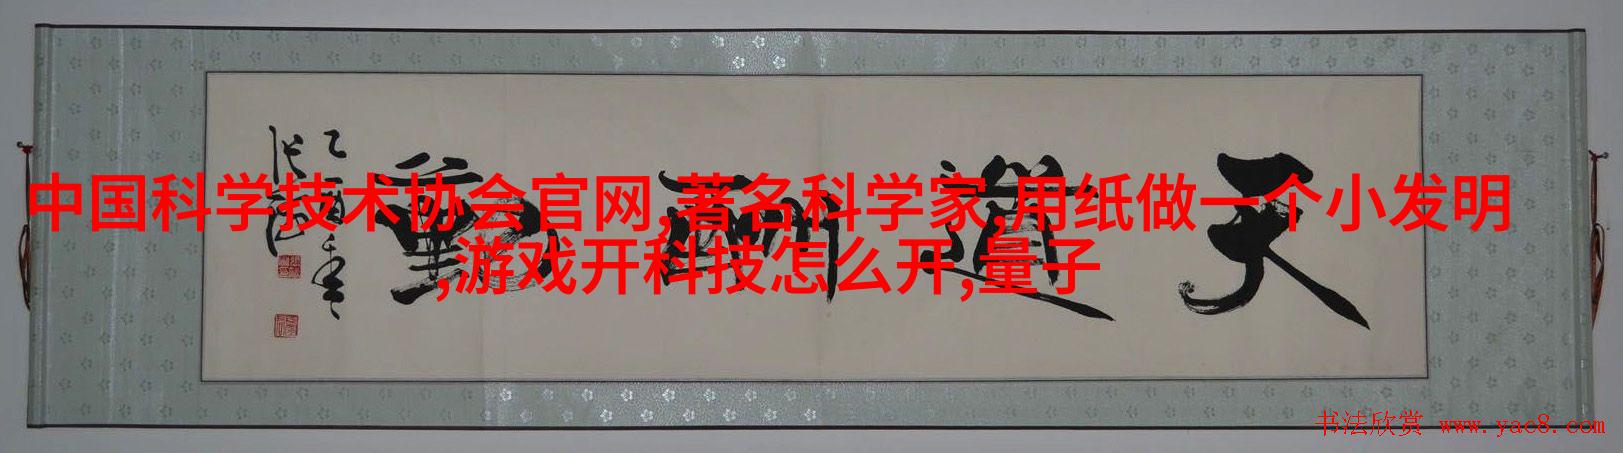 中国科学技术协会官网,著名科学家,用纸做一个小发明
,游戏开科技怎么开,量子
天道酬勤
乙酉年
书法欣赏 www.yac8.com